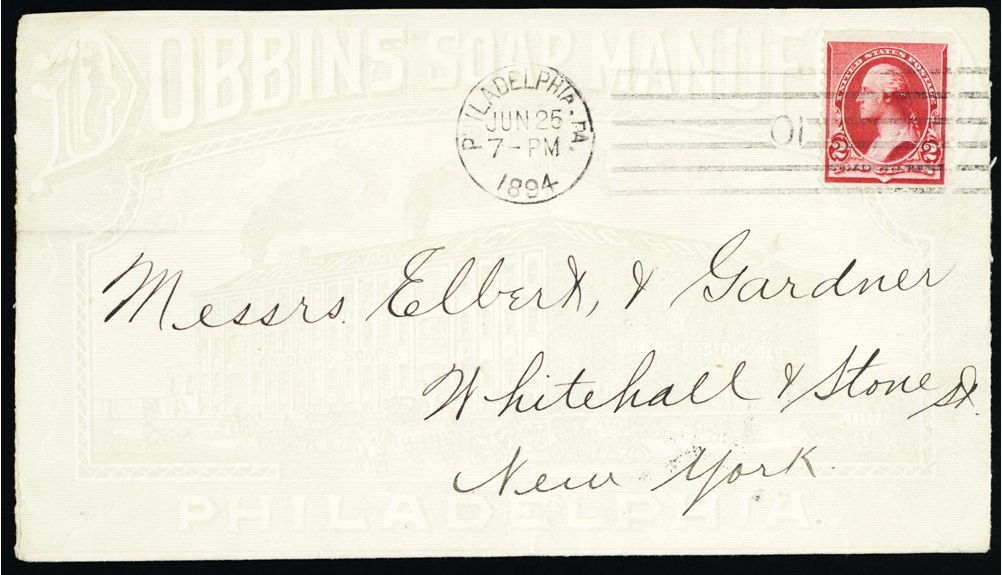 DOBBINS SOAP MANUF
PHILADELPHIA, PA.
JUN 25
7-PM
1894
01
UNITED STATES POSTAGE
2 2
Messrs. Elbert, & Gardner
Whitehall & Stone St.
New York.
PHILADELPHIA.